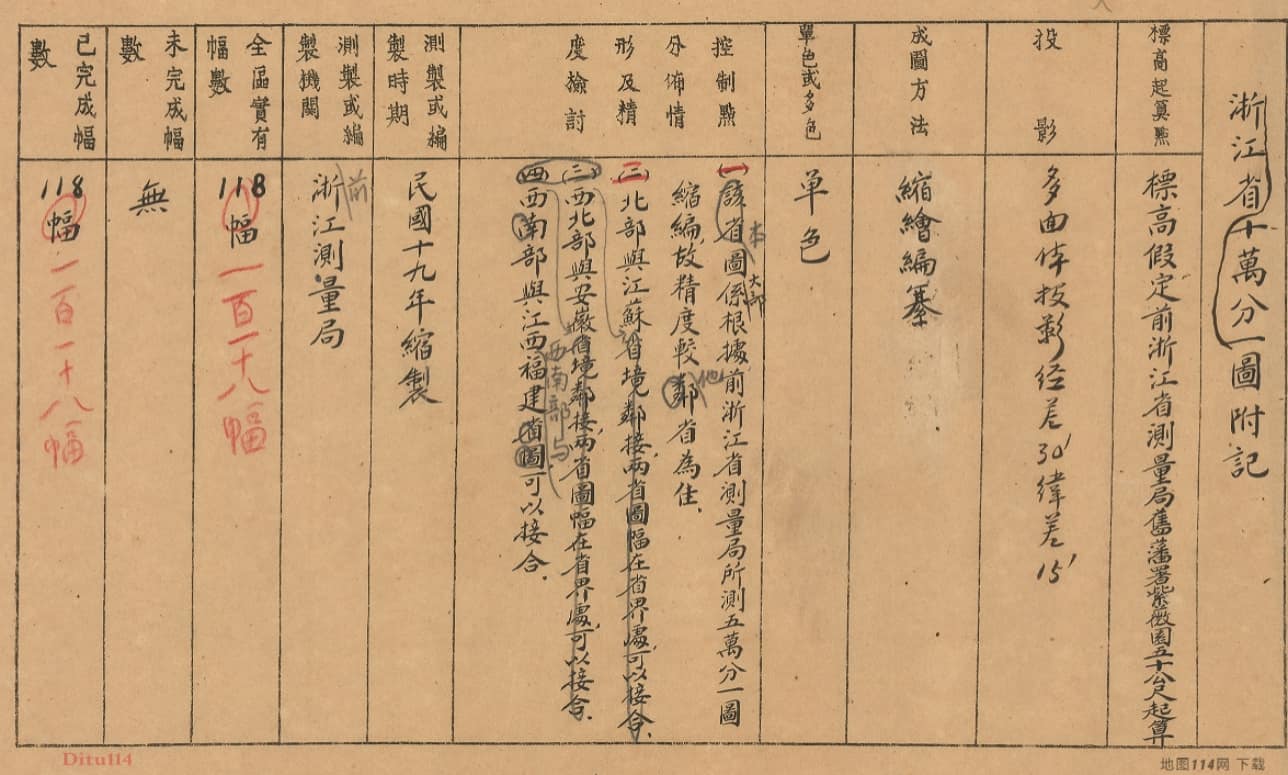 浙江省十萬分一圖附記
標高起算點
標高假定前浙江省測量局舊藩署紫薇園五十公尺起算
投影
多面体投影经差30′緯差15′
成圖方法
縮繪編纂
單色或多色
单色
控制點
分佈情
形及精
度檢討
(一)該省圖係根據前浙江省測量局所測五萬分一圖
本
大部
縮編,故精度較鄰省為佳.
他
(二)北部與江蘇省境鄰接,兩省圖幅在省界處,可以接合.
(三)西北部與安徽省境鄰接,兩省圖幅在省界處,可以接合.
西南部与
(四)西南部與江西福建省圖可以接合.
測製或編
製時期
民國十九年縮製
測製或編
製機関
前
浙江測量局
全區實有
幅數
118幅
一百一十八幅
未完成幅
數
無
已完成幅
數
118幅
一百一十八幅
Ditu114
地图114网 下载